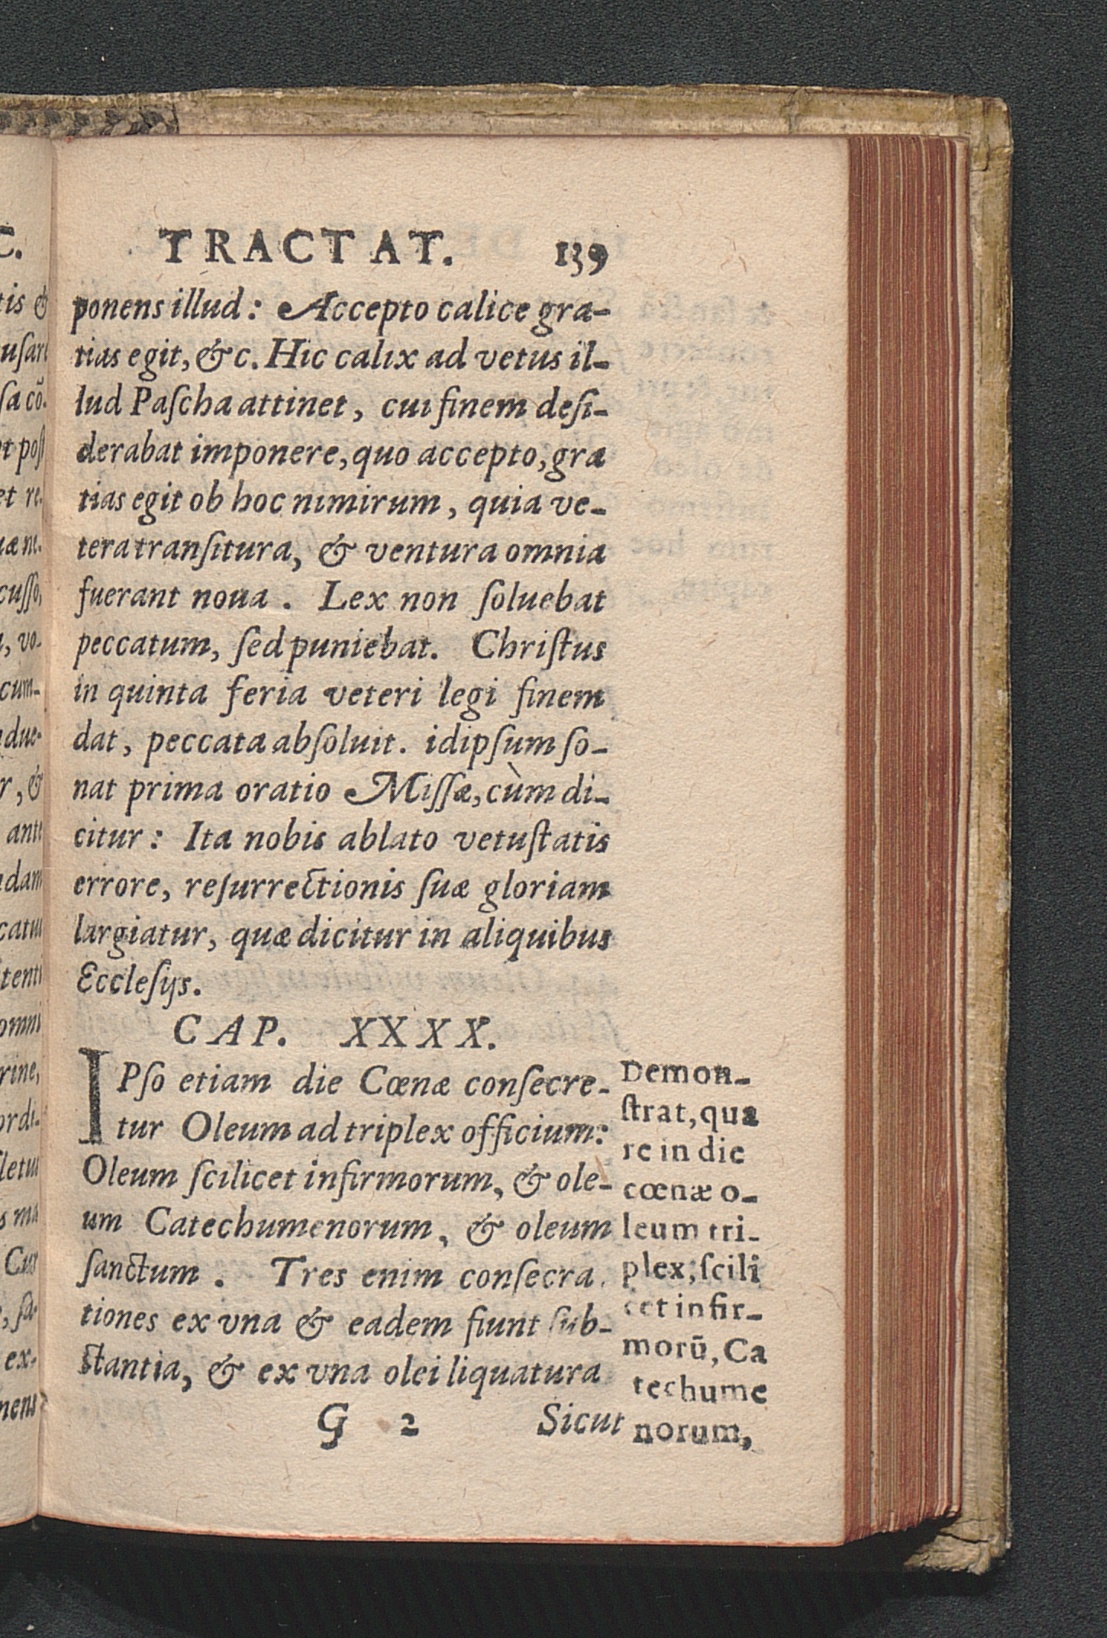 TRACTAT. 139
ponens illud: Accepto calice gra-
tias egit, & c. Hic calix ad vetus il-
lud Paſcha attinet, cui finem deſi-
derabat imponere, quo accepto, gra
tias egit ob hoc nimirum, quia ve-
tera tranſitura, & ventura omnia
fuerant noua. Lex non ſoluebat
peccatum, ſed puniebat. Chriſtus
in quinta feria veteri legi finem
dat, peccata abſoluit. idipſum ſo-
nat prima oratio Miſſæ, cùm di-
citur: Ita nobis ablato vetuſtatis
errore, reſurrectionis ſuæ gloriam
largiatur, quæ dicitur in aliquibus
Eccleſijs.
CAP. XXXX.
IPſo etiam die Cœnæ conſecre-
tur Oleum ad triplex officium:
Oleum ſcilicet infirmorum, & ole-
um Catechumenorum, & oleum
ſanctum. Tres enim conſecra.
tiones ex vna & eadem fiunt ſub-
ſtantia, & ex vna olei liquatura
G 2 Sicut
Demon-
ſtrat, qua
re in die
cœnæ o-
leum tri-
plex, ſcili
cet infir-
morū, Ca
techume
norum,
C.
tis &
uſari
ſa cō.
et poſt
et re.
uæ ni.
cuſſo,
, vo-
cum-
ndue-
r, &
ante
ndam
catui
tenti
omni
rine,
ordi-
letur
s ma
Cur
, ſa-
ex-
nens